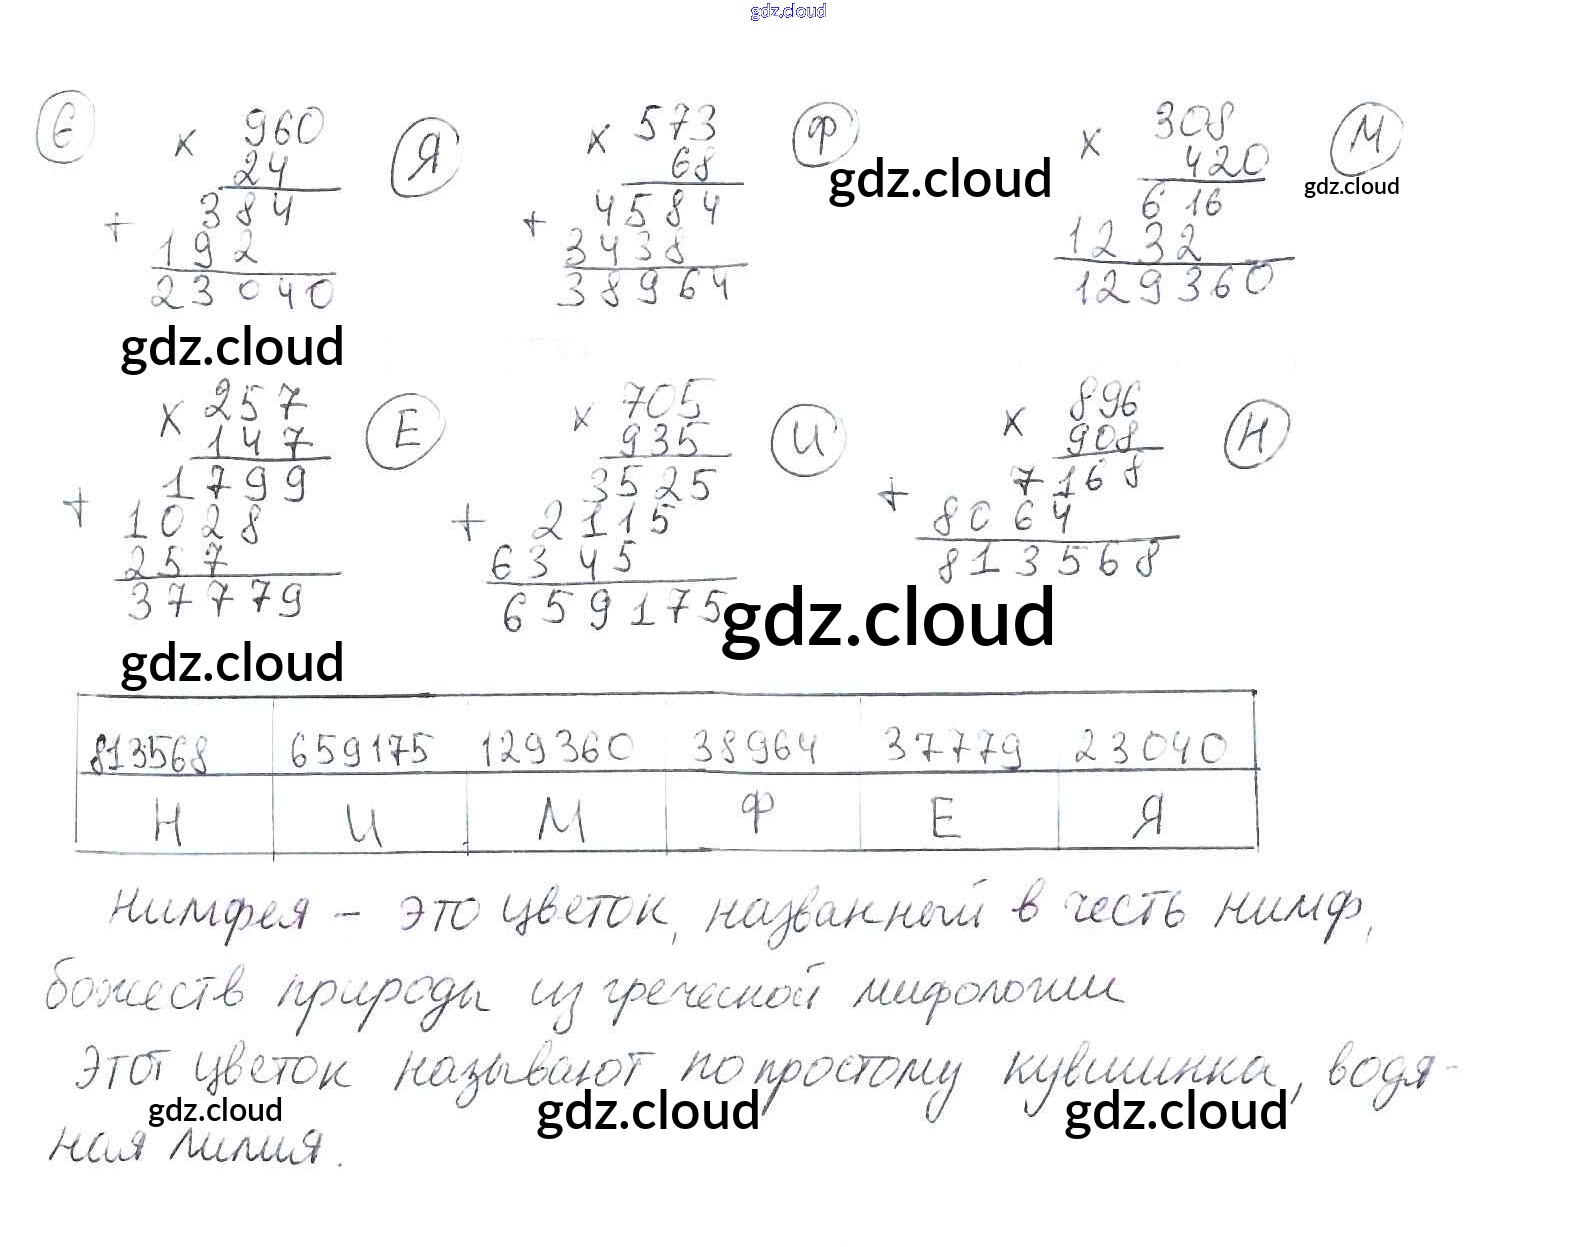 gdz.cloud
6 × 960 Я × 573 Ф × 308 М
24 68 gdz.cloud 420 gdz.cloud
+ 384 + 4584 616
192 3438 1232
23040 38964 129360
gdz.cloud
× 257 Е × 705 И × 896 Н
147 935 908
+ 1799 + 3525 + 7168
1028 2115 8064
257 6345 813568
37779 659175 gdz.cloud
gdz.cloud
813568 659175 129360 38964 37779 23040
Н И М Ф Е Я
Нимфея – это цветок, названный в честь нимф,
божеств природы из греческой мифологии
Этот цветок называют по простому кувшинка, водя-
gdz.cloud gdz.cloud gdz.cloud
ная лилия.